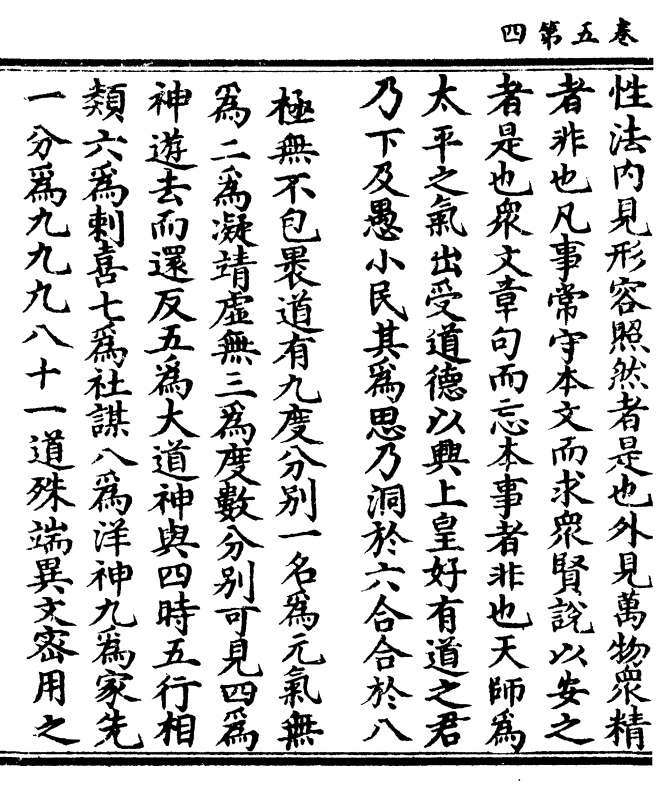 卷五第四
性法内見形容照然者是也外見萬物衆精
者非也凡事常守本文而求衆賢説以安之
者是也衆文章句而忘本事者非也天師爲
太平之氣出受道德以興上皇好有道之君
乃下及愚小民其爲思乃洞於六合合於八
極無不包裹道有九度分别一名爲元氣無
爲二爲凝靖虚無三爲度數分别可見四爲
神遊去而還反五爲大道神與四時五行相
類六爲刺喜七爲社謀八爲洋神九爲家先
一分爲九九九八十一道殊端異文密用之